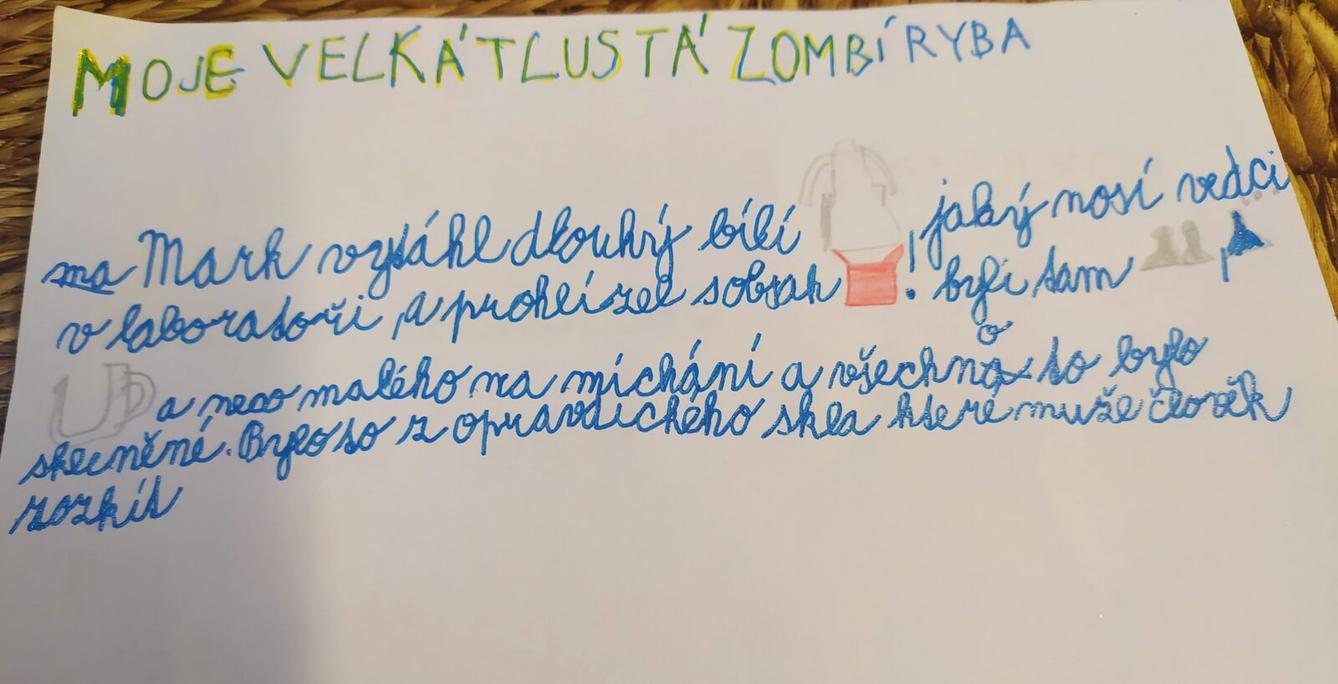 MOJE VELKÁ TLUSTÁ ZOMBÍ RYBA
ma Mark vytáhl dlouhý bílí , jaký nosí vedci
v laboratoři , a prohlí zel sobsah ! byli tam ,
a neco malého na míchání a všechno to bylo
skecněné. Bylo to z opravdického skla které muže člověk
rozbít